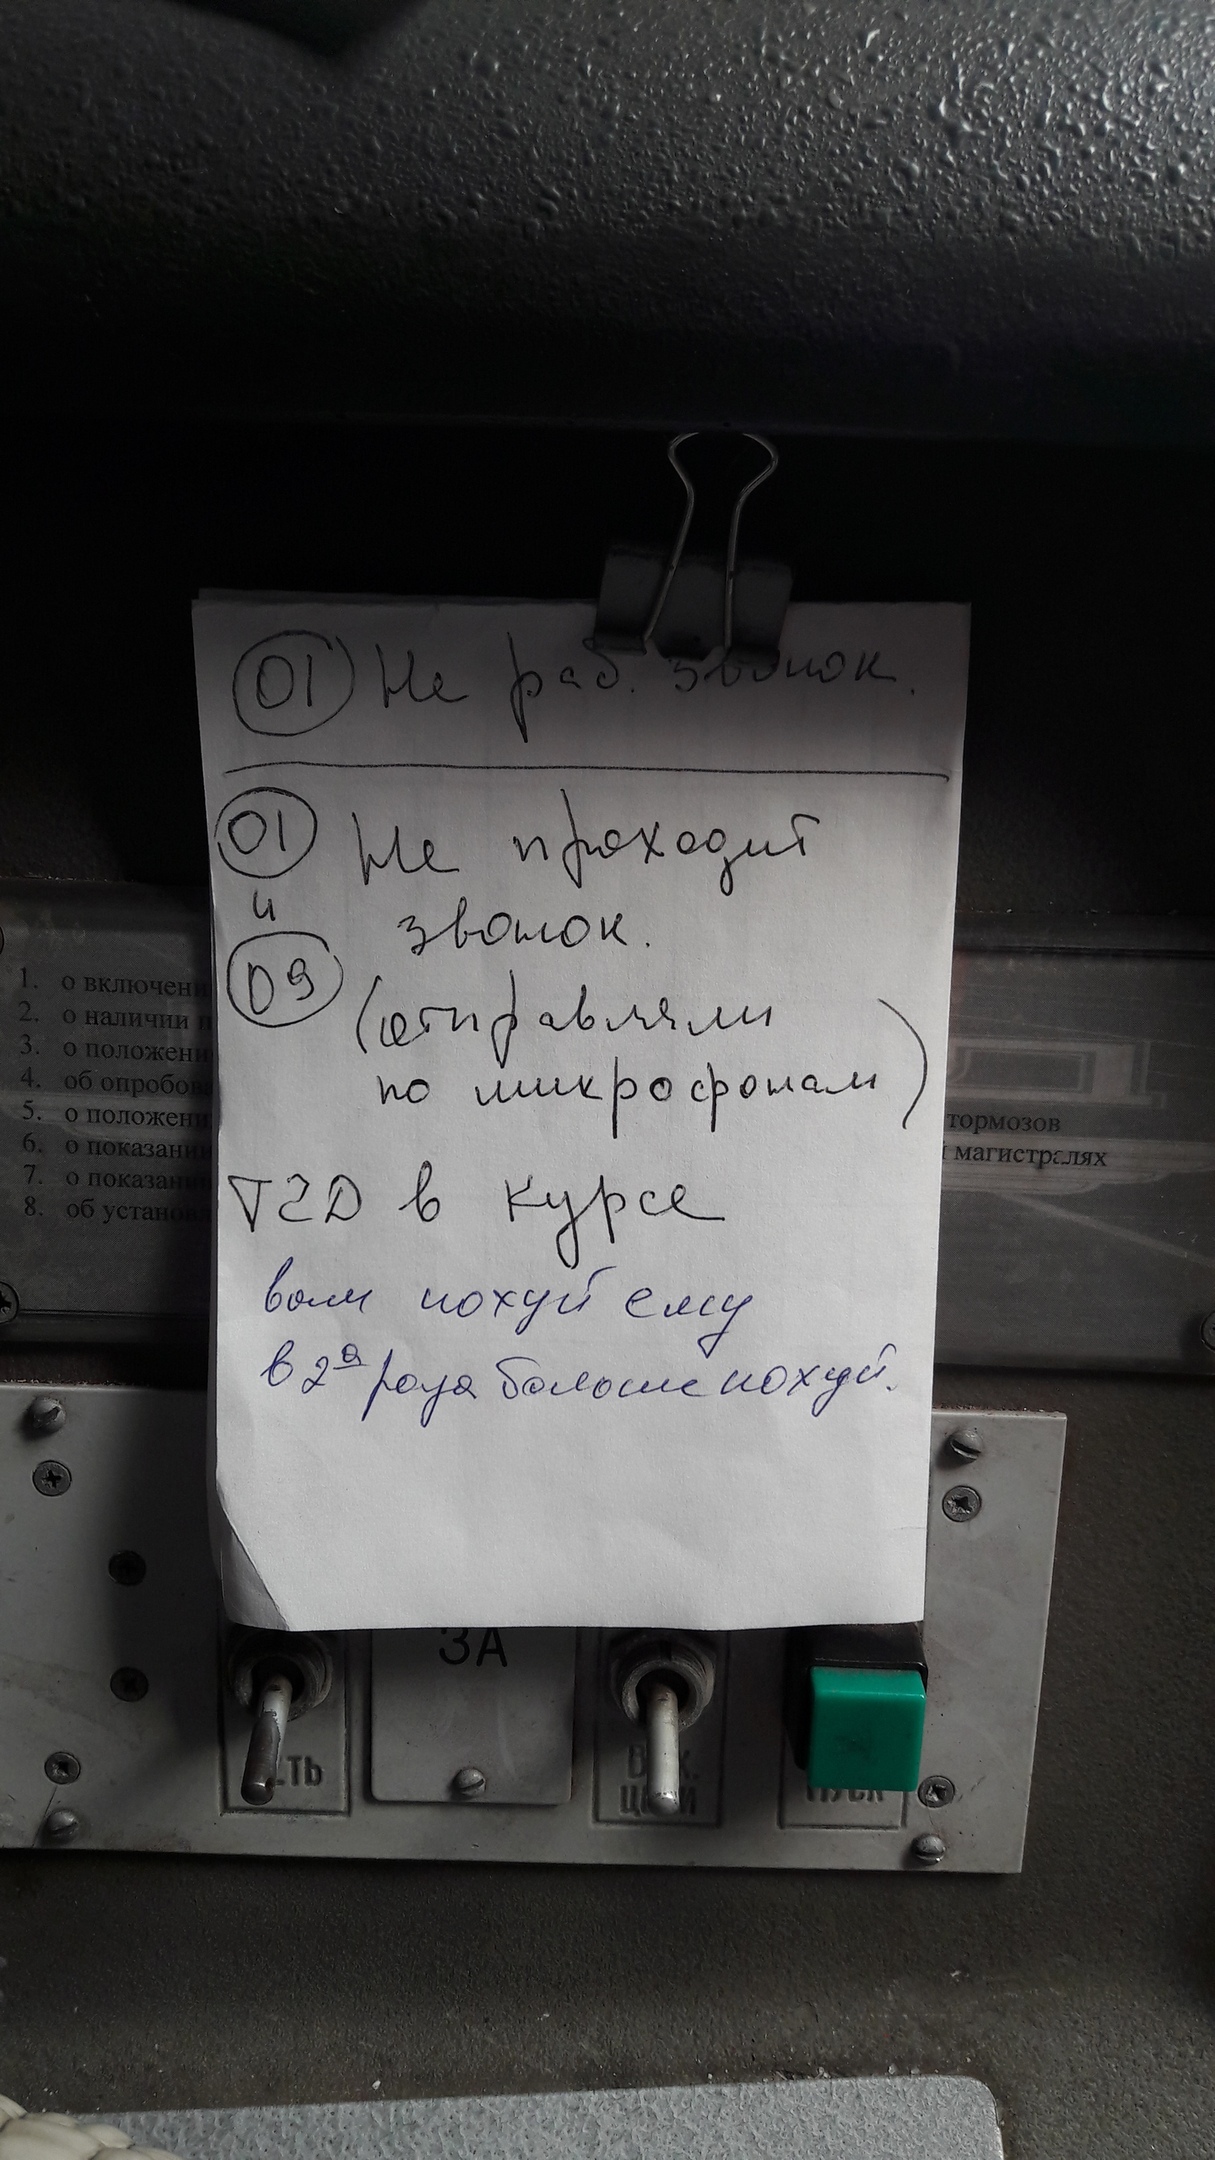 01 Не раб. звонок.
01 Не проходит
и звонок.
09 (отправляли
по микрофонам)
ТЧД в курсе
вам похуй ему
в 2а раза больше похуй.
1. о включени
2. о наличии п
3. о положени
4. об опробова
5. о положени
6. о показани
7. о показани
8. об установ
тормозов
магистралях
ЗА
ПУСК